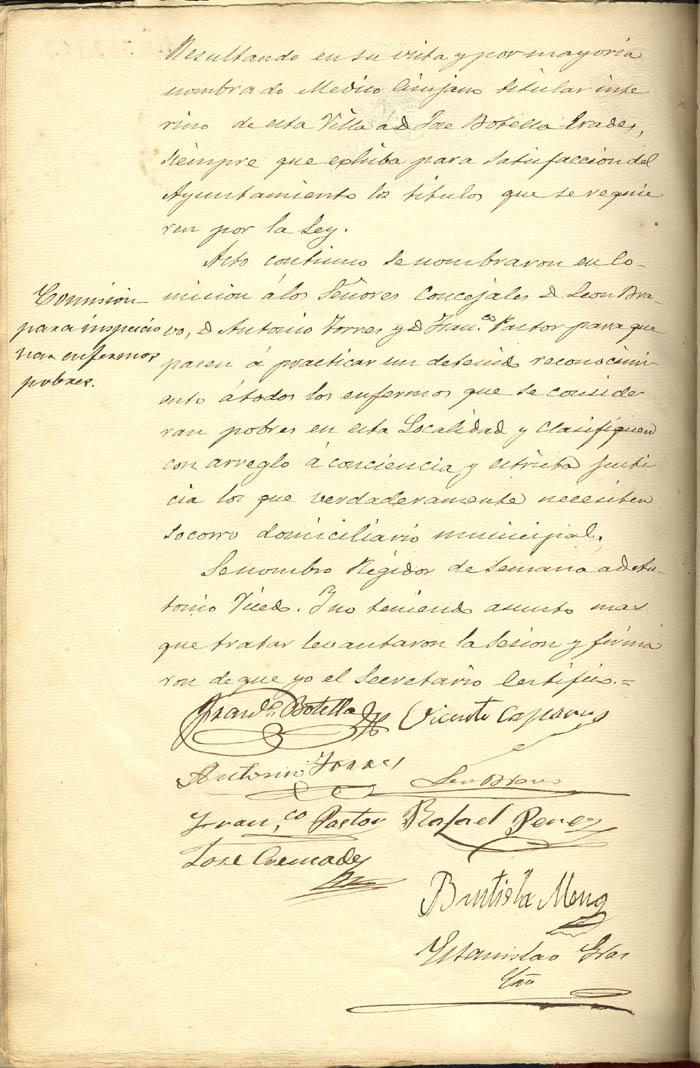 Resultando en su vista y por mayoria
nombrado Medico Cirujano titular inte
rino de esta Villa a D Jose Botella Prades,
siempre que exhiba para satisfaccion del
Ayuntamiento los titulos que se requie
ren por la Ley.
Acto continuo se nombraron en Co-
mision á los Señores Concejales D Leon Bra-
vo, D Antonio Torres y D Fran.co Pastor para que
pasen á practicar un detenido reconocimi-
ento á todos los enfermos que se conside
ran pobres en esta Localidad y clasifiquen
con arreglo á conciencia y estricta justi
cia los que verdaderamente necesiten
socorro domiciliario municipal.
Se nombro Regidor de Semana a D An-
tonio Viced. Y no teniendo asunto mas
que tratar levantaron la sesion y firma
ron de que yo el Secretario Certifico.=
Comision
para inspeccio
nar enfermos
pobres.
Botella
Vicente
Antonio Torres
Leon Bravo
Fran.co Pastor
Rafael Perez
Jose Cremades
Bautista
Estanislao
Srio